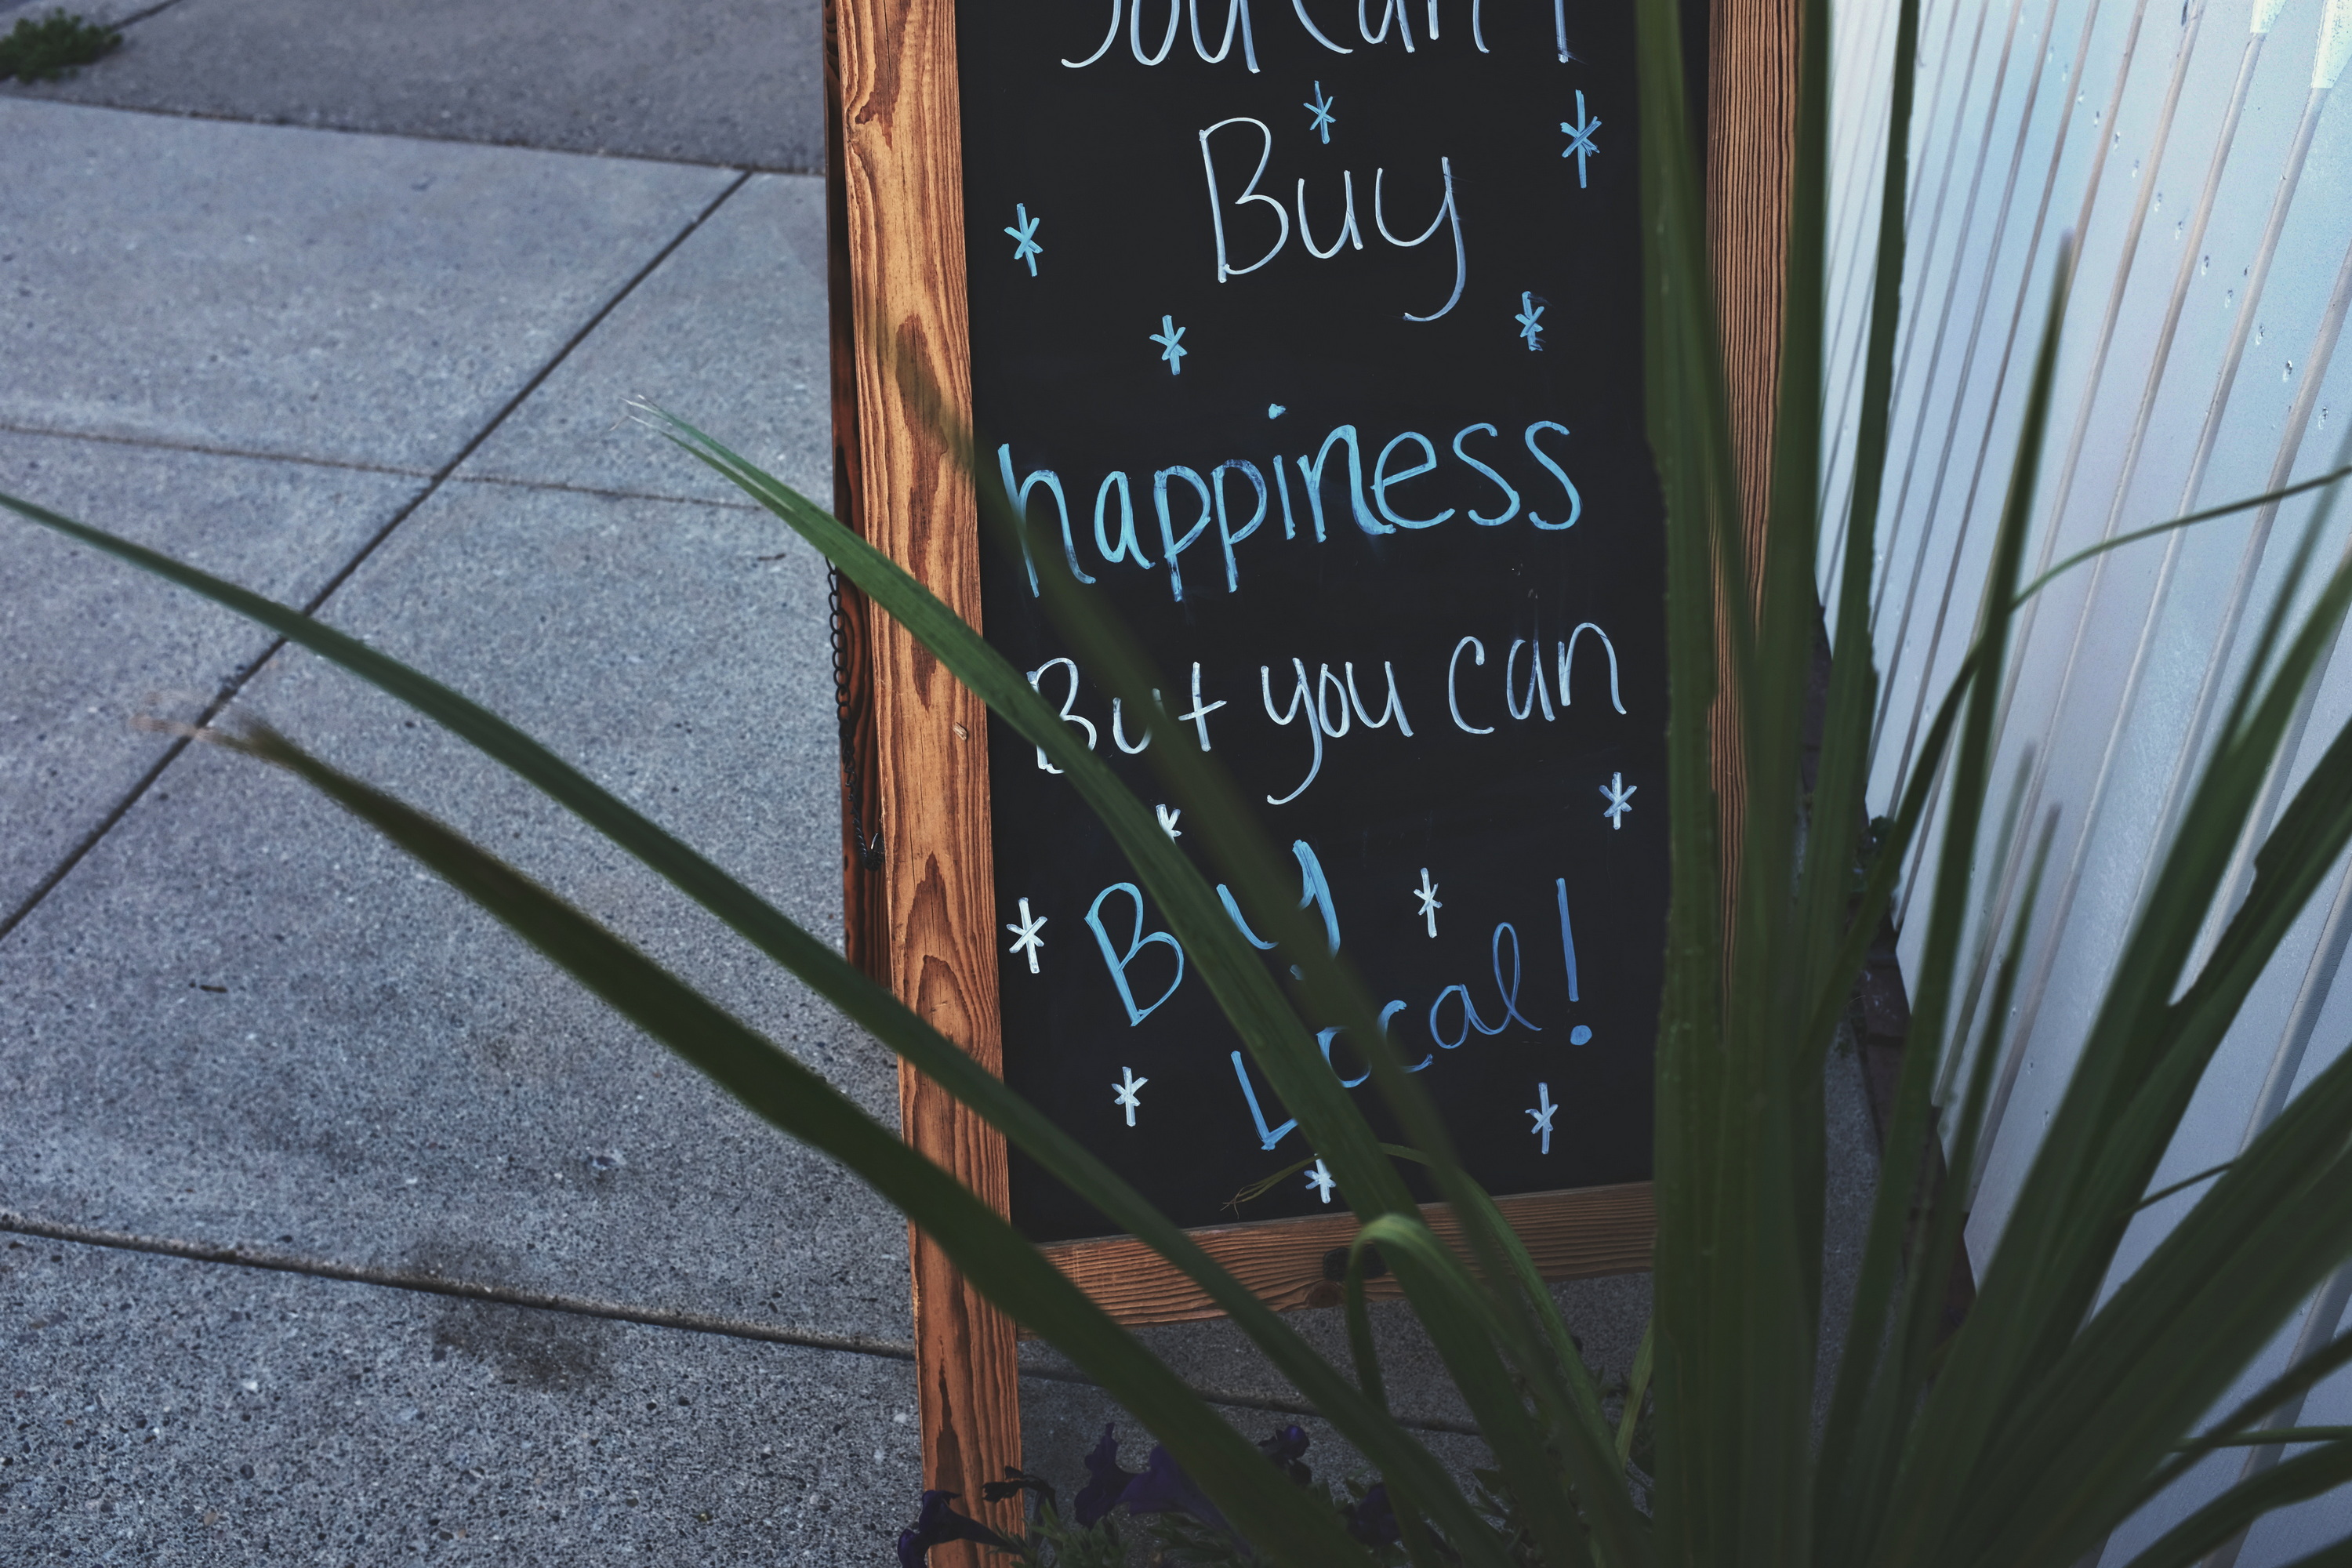 You Can't
Buy
happiness
But you can
Buy
Local!